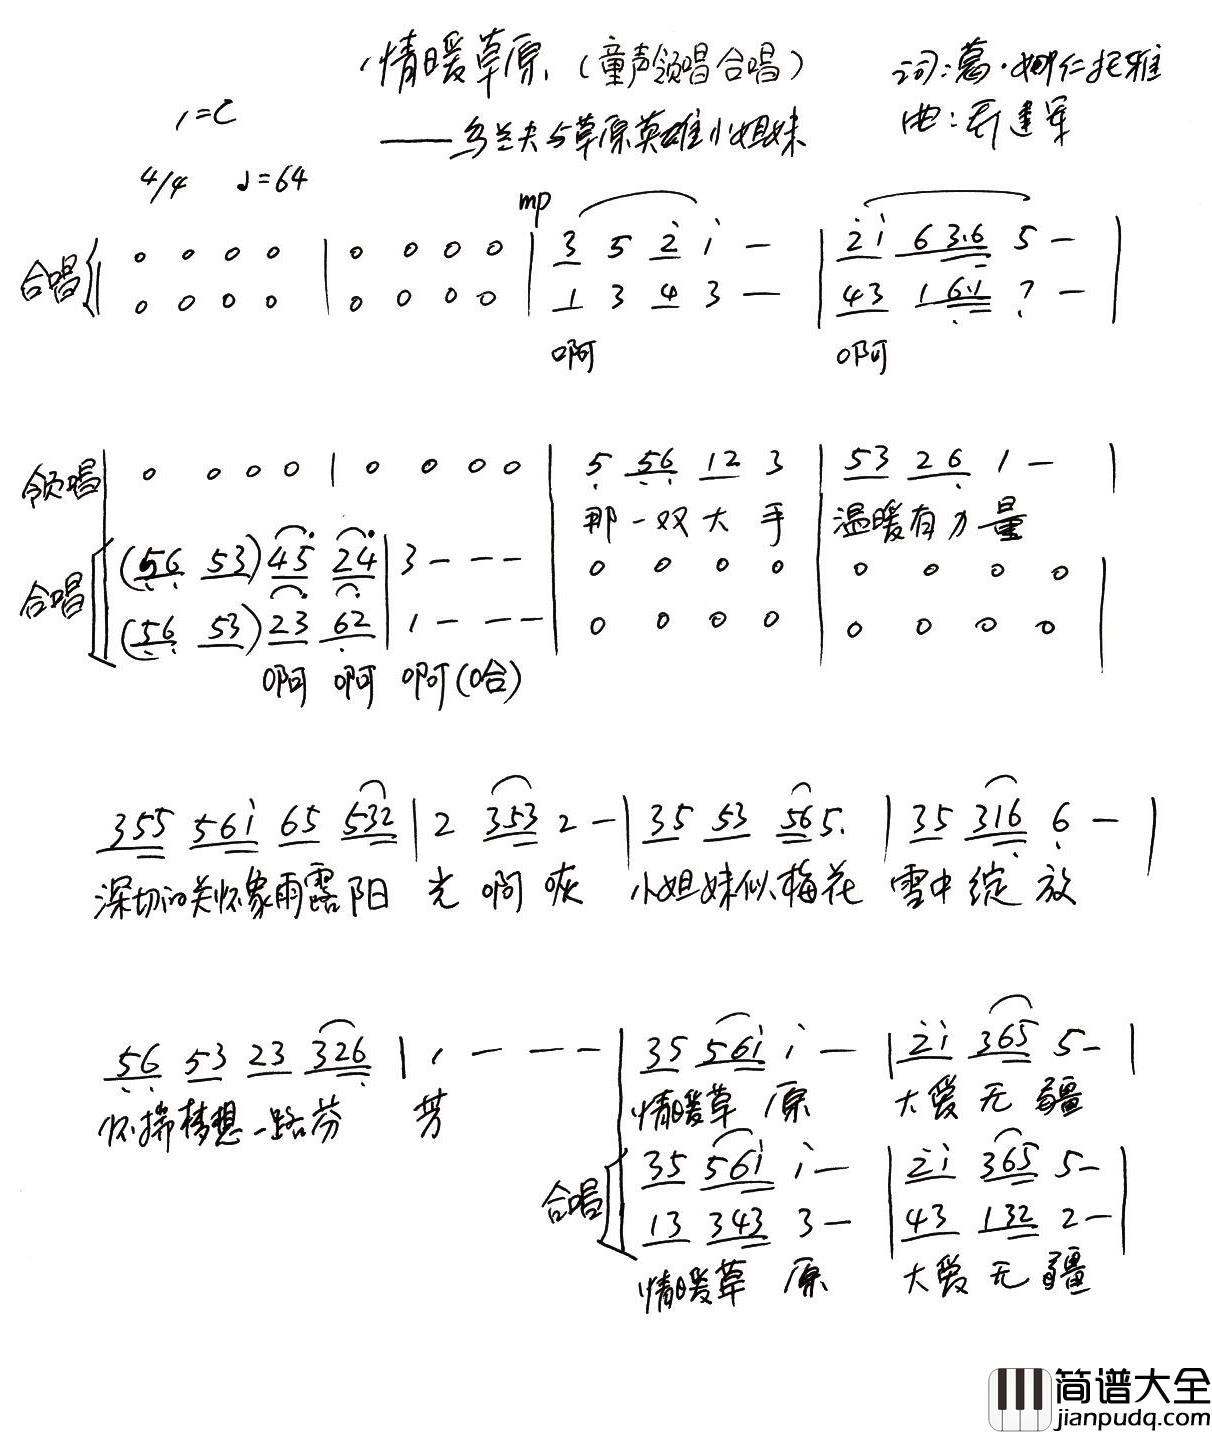 情暖草原（童声领唱合唱） 词：葛·娜仁托雅
1=C ——乌兰夫与草原英雄小姐妹 曲：乔建军
4/4 ♩=64
mp
合唱 0 0 0 0 | 0 0 0 0 | 3 5 2̇ 1̇ — | 2̇1̇ 6 3.6 5 — |
0 0 0 0 | 0 0 0 0 | 1 3 4 3 — | 43 1 6̣.1 7̣ — |
啊 啊
领唱 0 0 0 0 | 0 0 0 0 | 5̣ 5̣6̣ 12 3 | 53 26̣ 1 — |
那一双大手 温暖有力量
合唱 (5̣6̣ 53) 45 24 | 3 - - - | 0 0 0 0 | 0 0 0 0 |
(5̣6̣ 53) 23 6̣2 | 1 - - - | 0 0 0 0 | 0 0 0 0 |
啊 啊 啊(哈)
355 561̇ 65 532 | 2 353 2 — | 35 53 565. | 35 316̣ 6̣ — |
深切的关怀象雨露阳 光啊咴 小姐妹似梅花 雪中绽放
5̣6̣ 53 23 326̣ | 1 — — — | 35 561̇ 1̇ — | 2̇1̇ 365 5 - |
怀揣梦想一路芬 芳 情暖草原 大爱无疆
合唱 35 561̇ 1̇ — | 2̇1̇ 365 5 - |
13 343 3 — | 43 132 2 — |
情暖草原 大爱无疆
简谱大全
jianpudq.com